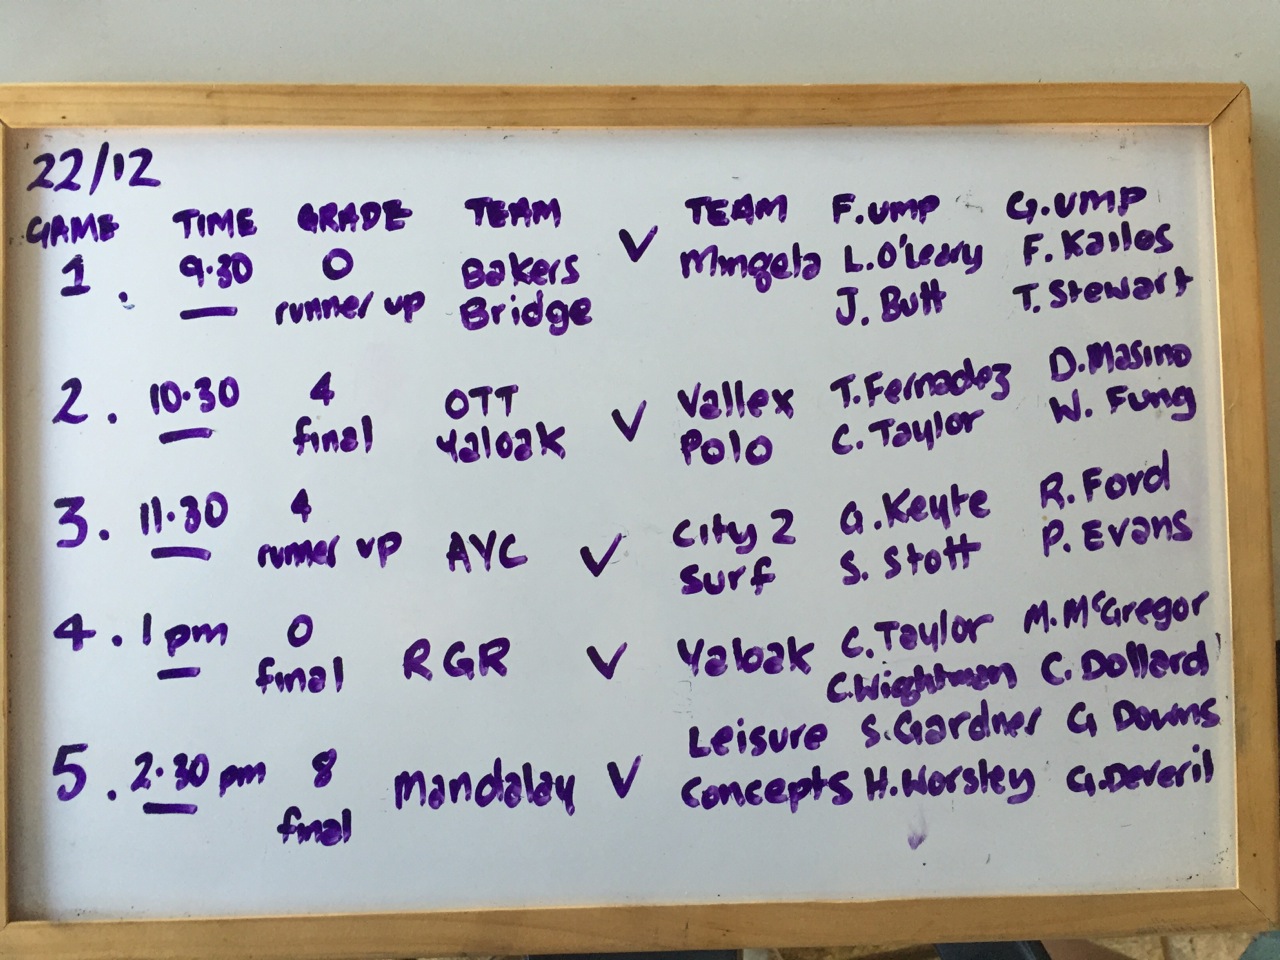 22/12
GAME TIME GRADE TEAM TEAM F.UMP G.UMP
1. 9.30 0 Bakers V Mingela L.O'Leary F. Kailos
runner up Bridge J. Butt T. Stewart
2. 10.30 4 OTT V Vallex T. Fernadez D. Masino
final Yaloak Polo C. Taylor W. Fung
3. 11.30 4 City 2 G. Keyte R. Ford
runner up AYC V Surf S. Stott P. Evans
4. 1pm 0 RGR V Yaloak C. Taylor M. McGregor
final C. Wightman C. Dollard
Leisure S. Gardner G Downs
5. 2.30 pm 8 Mandalay V Concepts H. Worsley G. Deveril
final